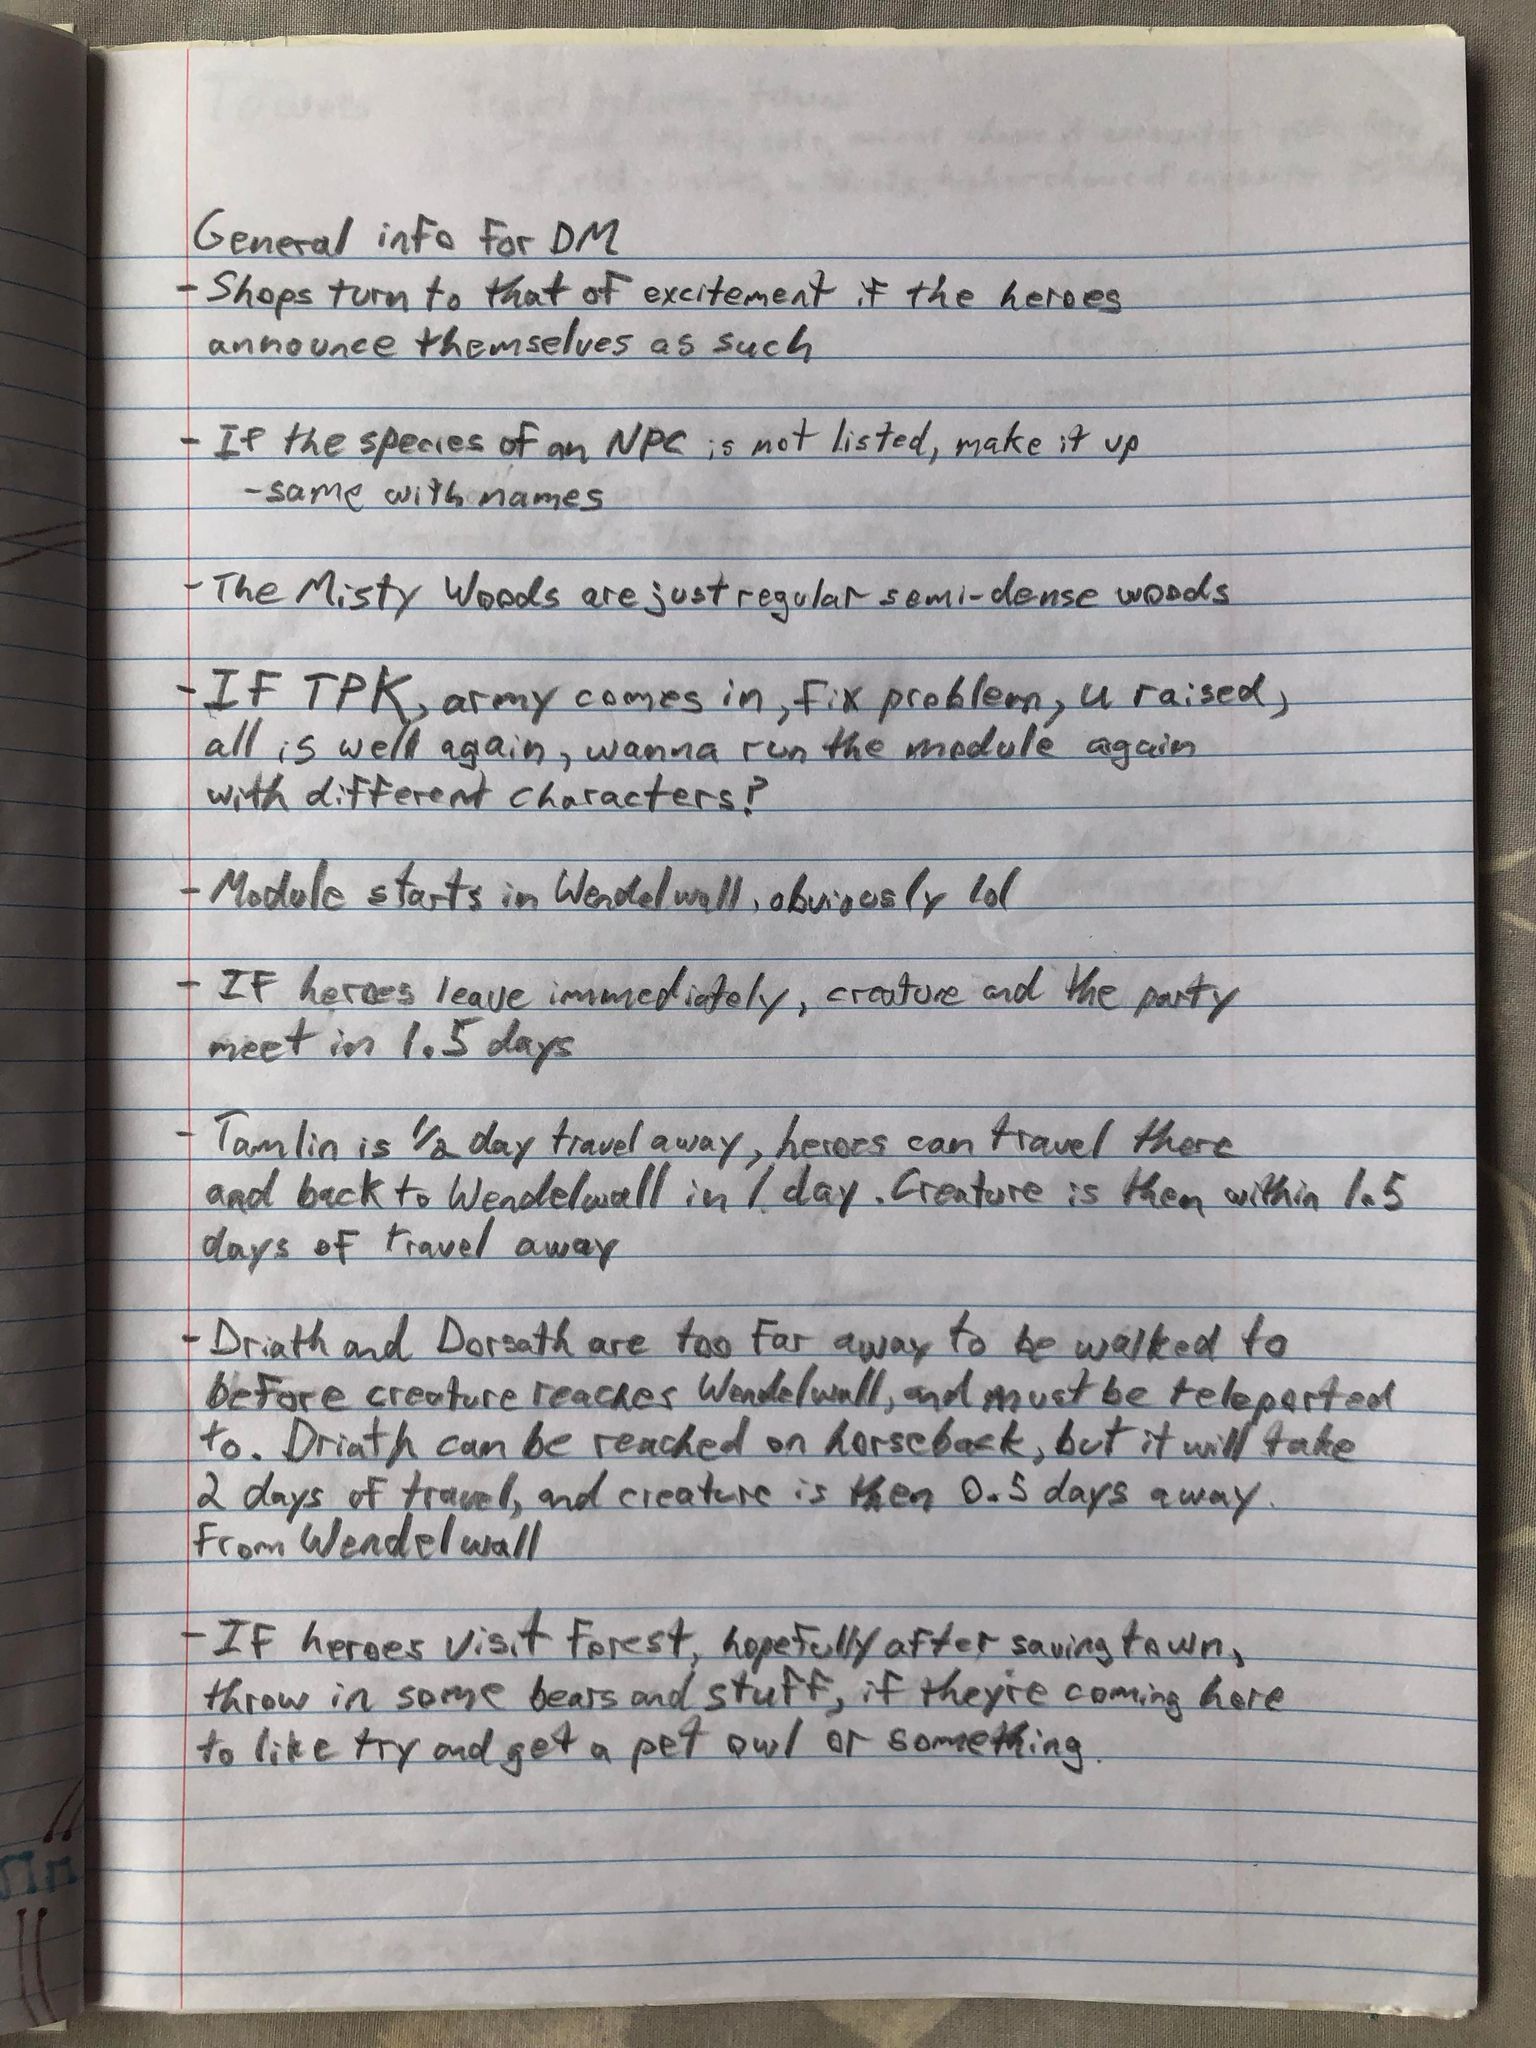 General info for DM
- Shops turn to that of excitement if the heroes
announce themselves as such
- If the species of an NPC is not listed, make it up
- same with names
- The Misty Woods are just regular semi-dense woods
- If TPK, army comes in, fix problem, u raised,
all is well again, wanna run the module again
with different characters?
- Module starts in Wendelwall, obviously lol
- If heroes leave immediately, creature and the party
meet in 1.5 days
- Tamlin is 1/2 day travel away, heroes can travel there
and back to Wendelwall in 1 day. Creature is then within 1.5
days of travel away
- Driath and Dorsath are too far away to be walked to
before creature reaches Wendelwall, and must be teleported
to. Driath can be reached on horseback, but it will take
2 days of travel, and creature is then 0.5 days away.
from Wendelwall
- If heroes visit forest, hopefully after saving town,
throw in some bears and stuff, if they're coming here
to like try and get a pet owl or something.